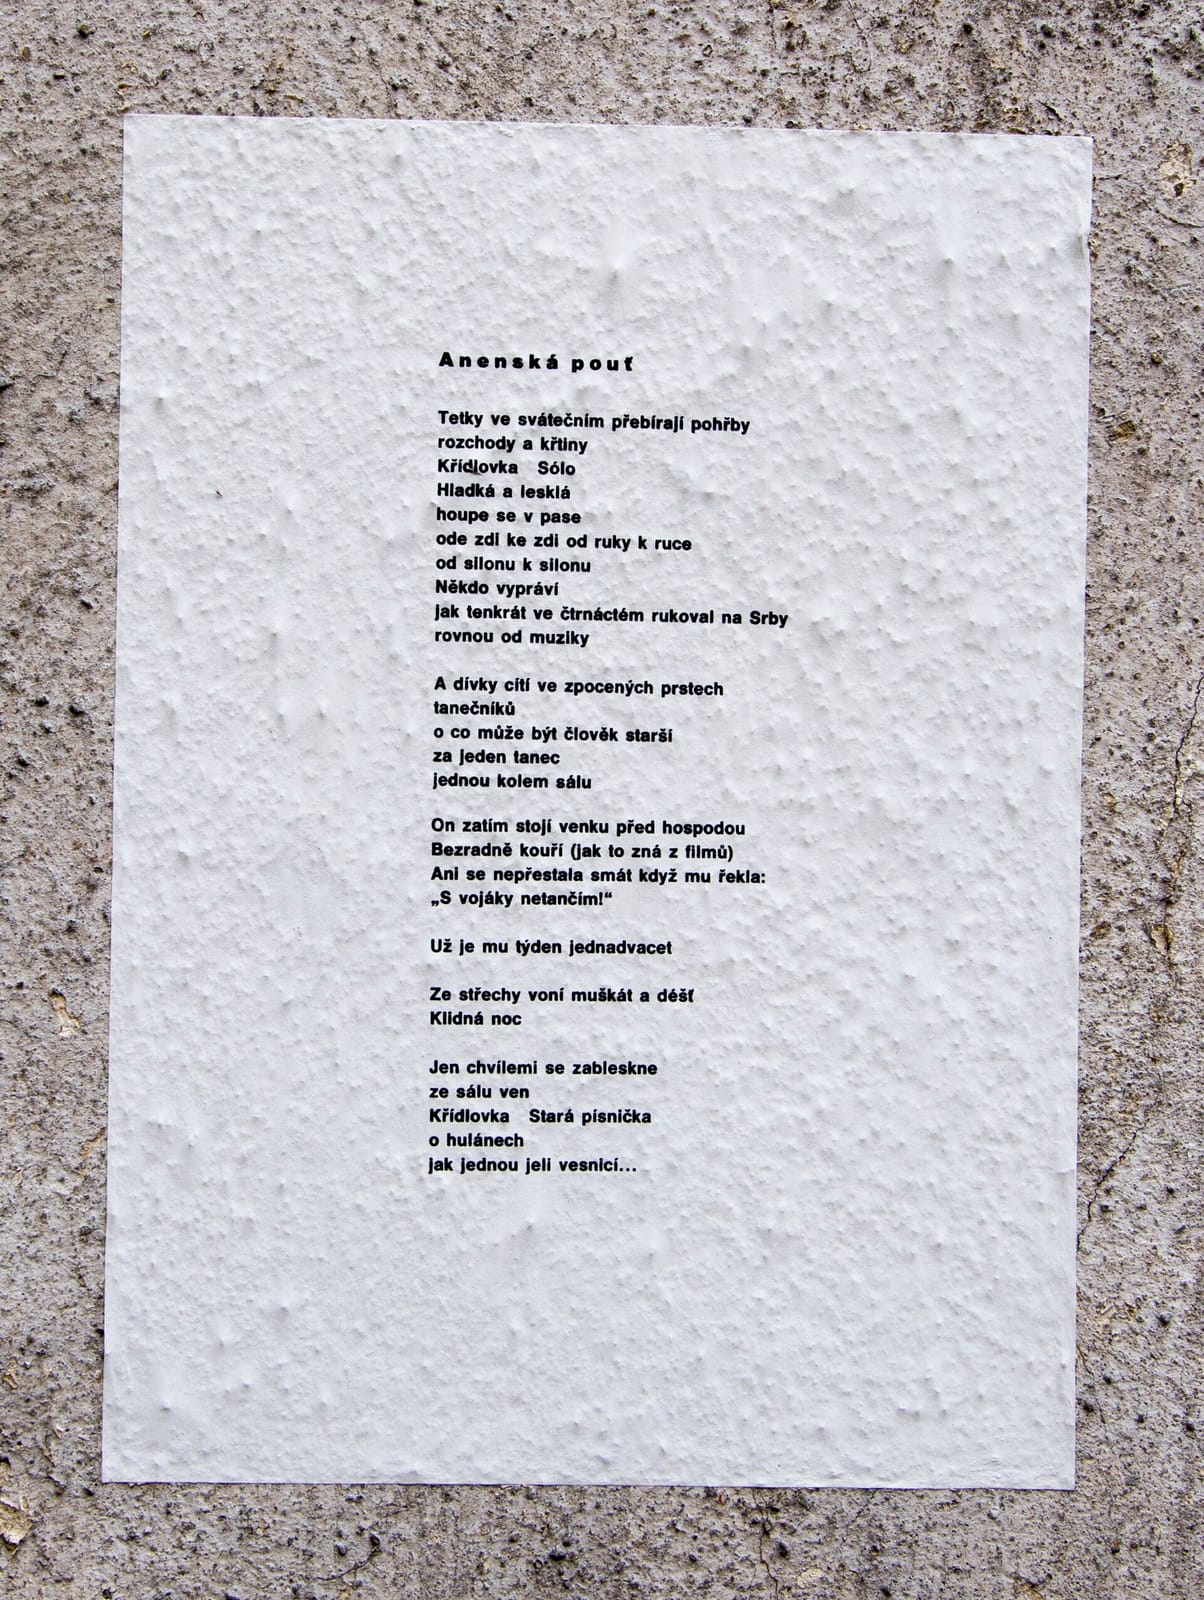 Anenská pouť
Tetky ve svátečním přebírají pohřby
rozchody a křtiny
Křídlovka Sólo
Hladká a lesklá
houpe se v pase
ode zdi ke zdi od ruky k ruce
od silonu k silonu
Někdo vypráví
jak tenkrát ve čtrnáctém rukoval na Srby
rovnou od muziky
A dívky cítí ve zpocených prstech
tanečníků
o co může být člověk starší
za jeden tanec
jednou kolem sálu
On zatím stojí venku před hospodou
Bezradně kouří (jak to zná z filmů)
Ani se nepřestala smát když mu řekla:
„S vojáky netančím!“
Už je mu týden jednadvacet
Ze střechy voní muškát a déšť
Klidná noc
Jen chvílemi se zableskne
ze sálu ven
Křídlovka Stará písnička
o hulánech
jak jednou jeli vesnicí...